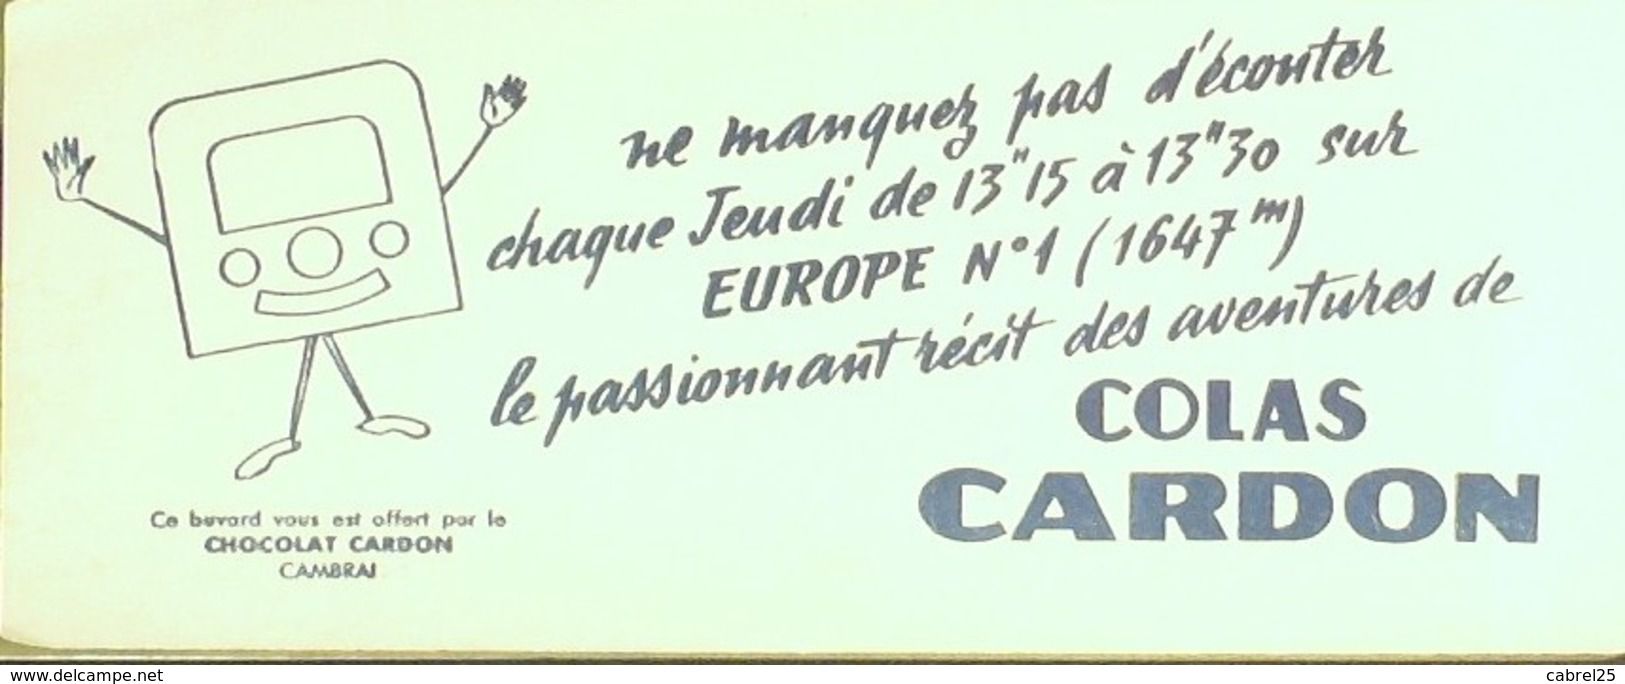 ne manquez pas d'écouter
chaque Jeudi de 13"15 à 13"30 sur
EUROPE N°1 (1647 m)
le passionnant récit des aventures de
COLAS
CARDON
Ce buvard vous est offert par le
CHOCOLAT CARDON
CAMBRAI
www.delcampe.net
cabrel25